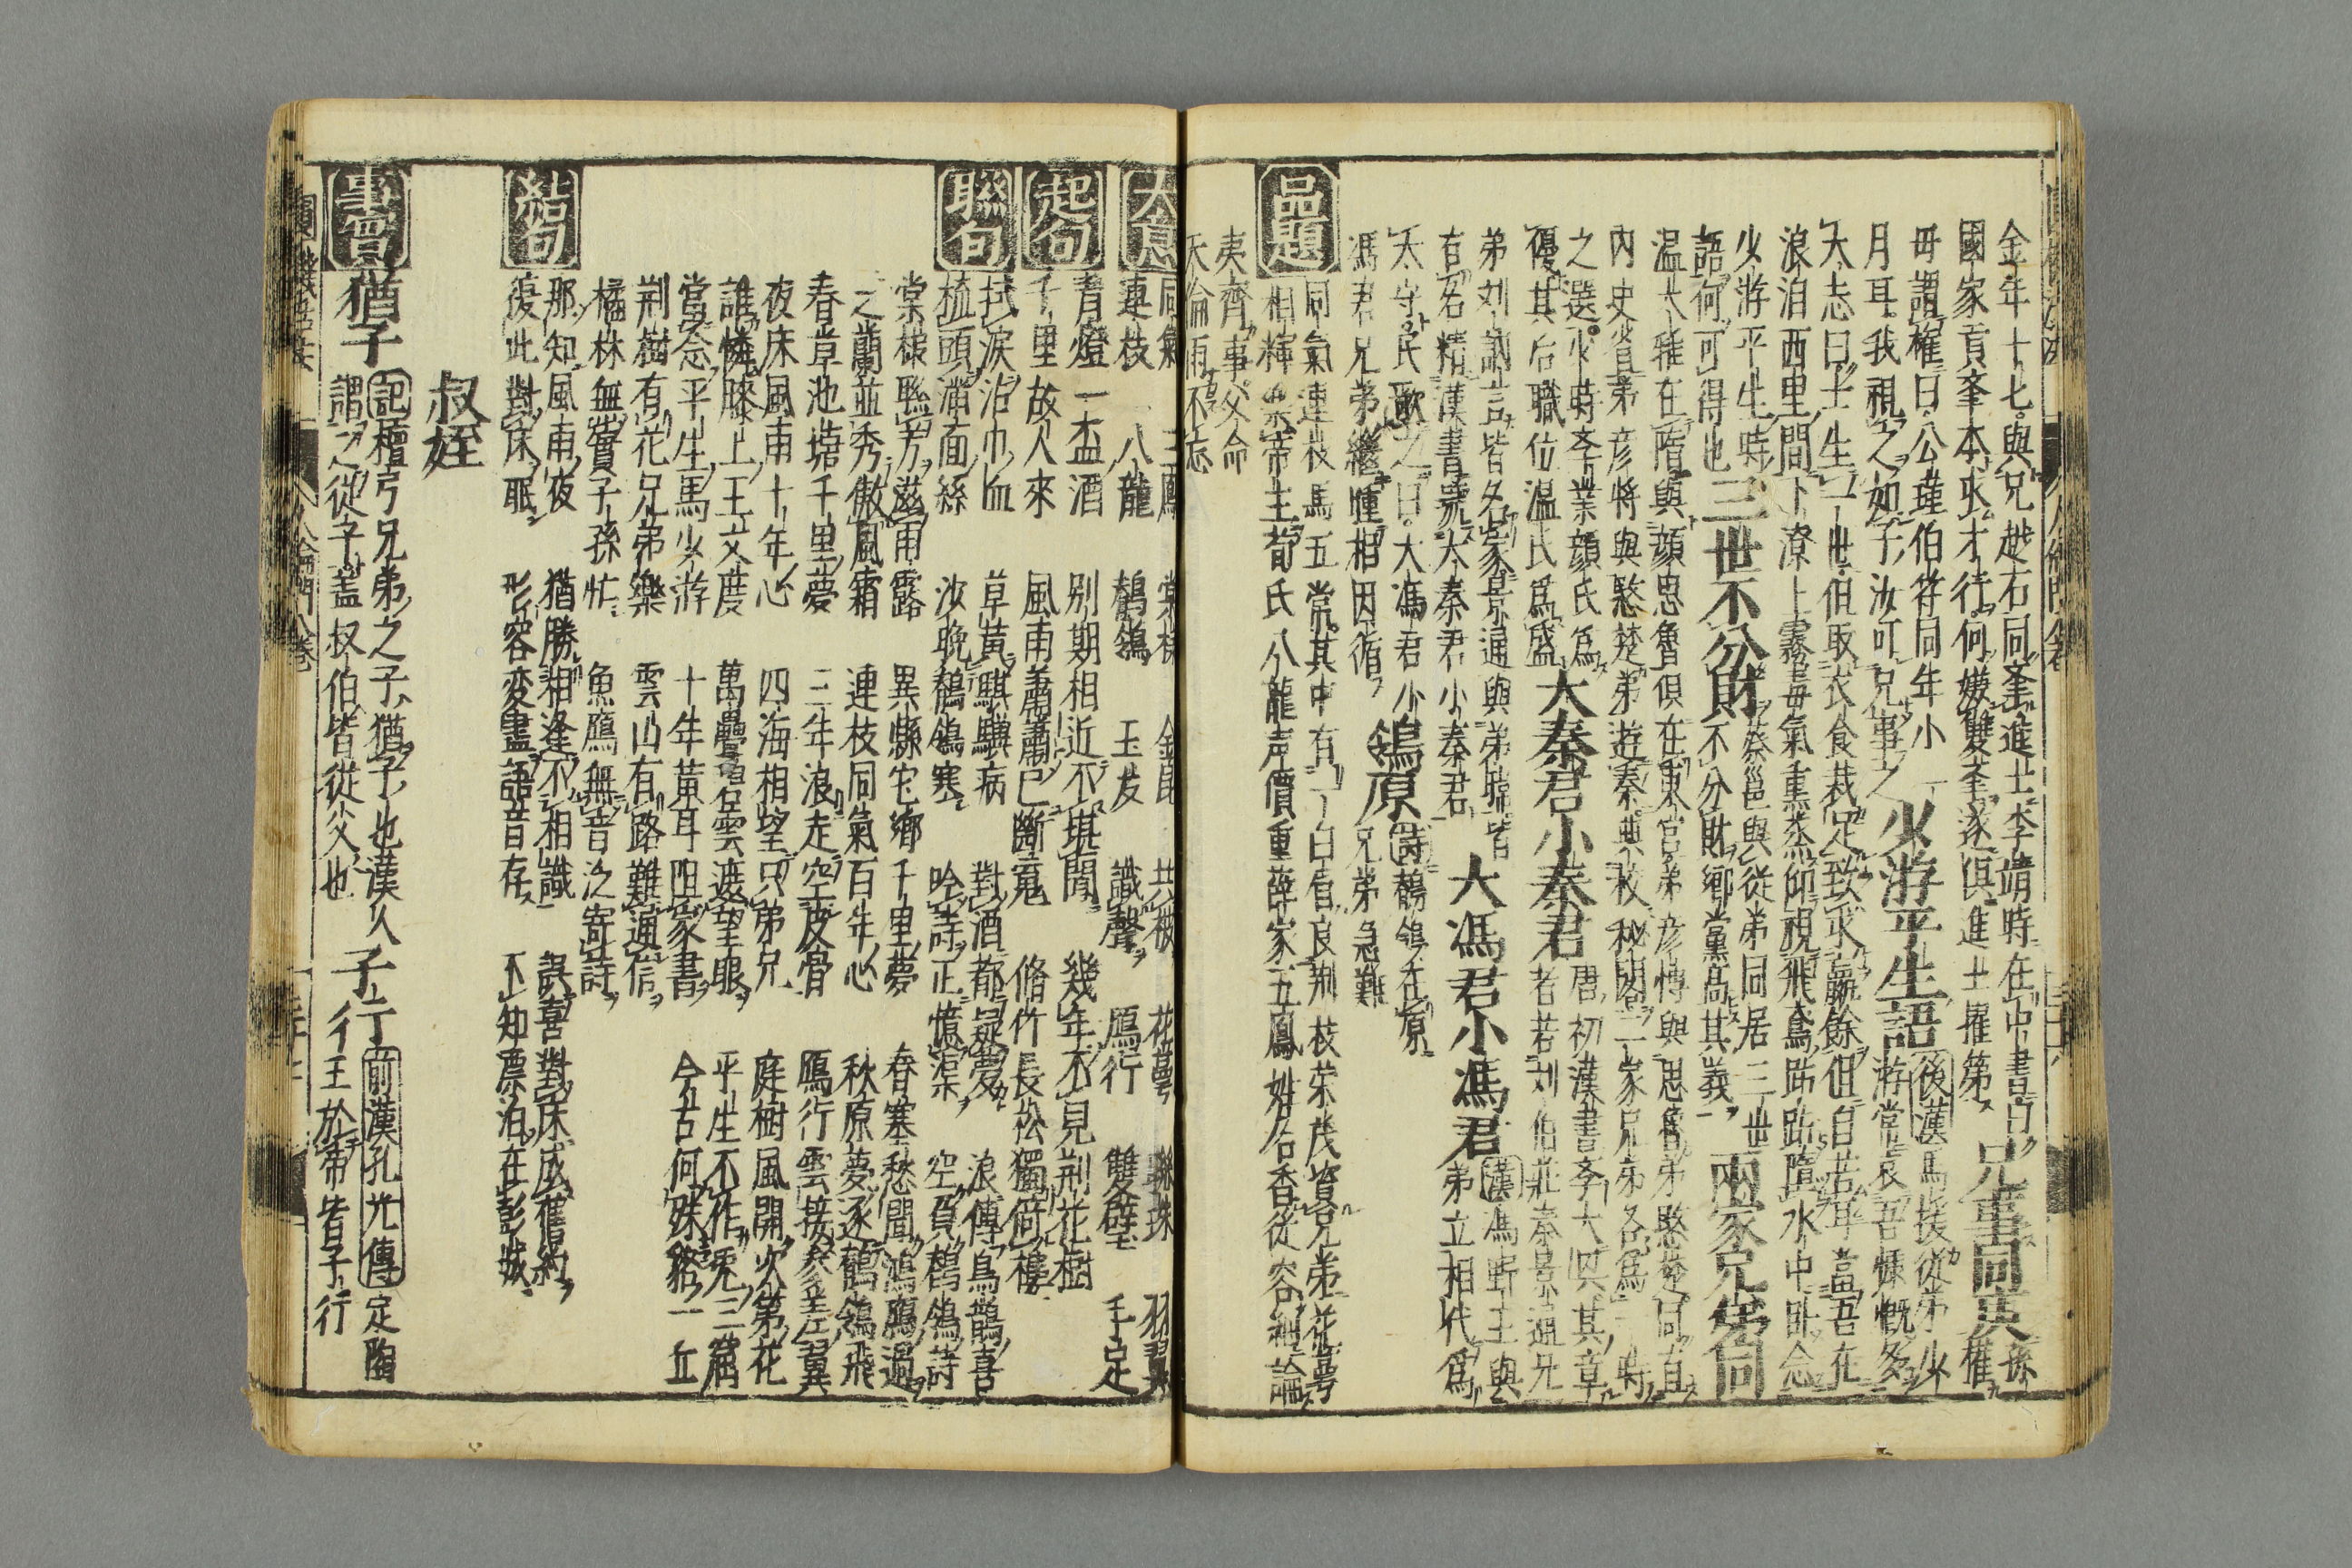 金年十七與兄越石同奎進士李靖時在中書曰
國家貢奎本求才行何嫌雙奎遂俱進士擢第 兄事同英 孫權
母謂權曰公瑾伯符同年小一
月耳我視之如子汝可兄事之 少游平生語 後漢馬援從弟少
游常哀吾慷慨多
大志曰士生一世但取衣食裁足致求嬴餘但自苦耳當吾在
浪泊西里間下潦上霧毒氣熏蒸仰視飛鳶跕跕墮水中臥念
少游平生時
語何可得也 三世不分財 蔡邕與從弟同居三世
不分財鄉黨高其義 兩家兄弟同
溫大雅在隋與顏思魯俱在東宮弟彥博與思魯弟愍楚同直
內史省弟彥將與愍楚弟遊秦典校秘閣二家兄弟各為一時
之選少時李業顏氏為
優其后職位溫氏為盛 大秦君小秦君 唐初漢書李大興其章
若若刘伯莊秦景通兄
弟刘訥言皆名家景通與弟暐皆
有名精漢書號大秦君小秦君 大馮君小馮君 漢馮野王與
弟立相代為
太守民歌之曰大馮君小
馮君兄弟繼踵相因循 鴒原 詩鶺鴒在原
兄弟急難
品題
同氣連枝馬五常其中有一白眉良荆枝茂資兄弟花萼
相輝樂帝主荀氏八龍声價重薛家五鳳姓名香從容細論
夷齊事父命
天倫兩不忘
大意
同氣 三鳳 棠棣 金昆 共被 花萼 聯珠
連枝 八龍 鶺鴒 玉友 識聲 鴈行 雙璧 手足
起句
青燈一盃酒 別期相近不堪聞 幾年不見荆花樹
千里故人來 風雨蕭蕭已斷䰟 脩竹長松獨倚樓
聯句
拭淚沾巾血 草黃騏驥病 對酒都疑夢 浪傳烏鵲喜
梳頭滿面絲 沙晚鶺鴒寒 吟詩正憶渠 空負鶺鴒詩
棠棣聯芳滋雨露 異縣它鄉千里夢 春寒愁聞鴻鴈過
之蘭並秀傲風霜 連枝同氣百年心 秋原夢逐鶺鴒飛
春草池塘千里夢 三年浪走空皮骨 鴈行雲接參差翼
夜床風雨十年心 四海相望只弟兄 庭樹風開次第花
誰憐膝上王文度 萬疊雲遮望眼 平生不作兎三窟
當念平生馬少游 十年黃耳阻家書 今古何殊貉一丘
荆樹有花兄弟樂 雲山有路難通信
橘株無實子孫忙 魚鴈無音泛寄詩
結句
那知風雨夜 猶勝相逢不相識 誤喜對床成舊約
復此對床眠 形容変盡語音存 不知漂泊在彭城
叔姪
事實
猶子 記檀弓兄弟之子猶子也漢人
謂之從子蓋叔伯皆從父也 子行 前漢孔光傳定陶
王於帝皆子行